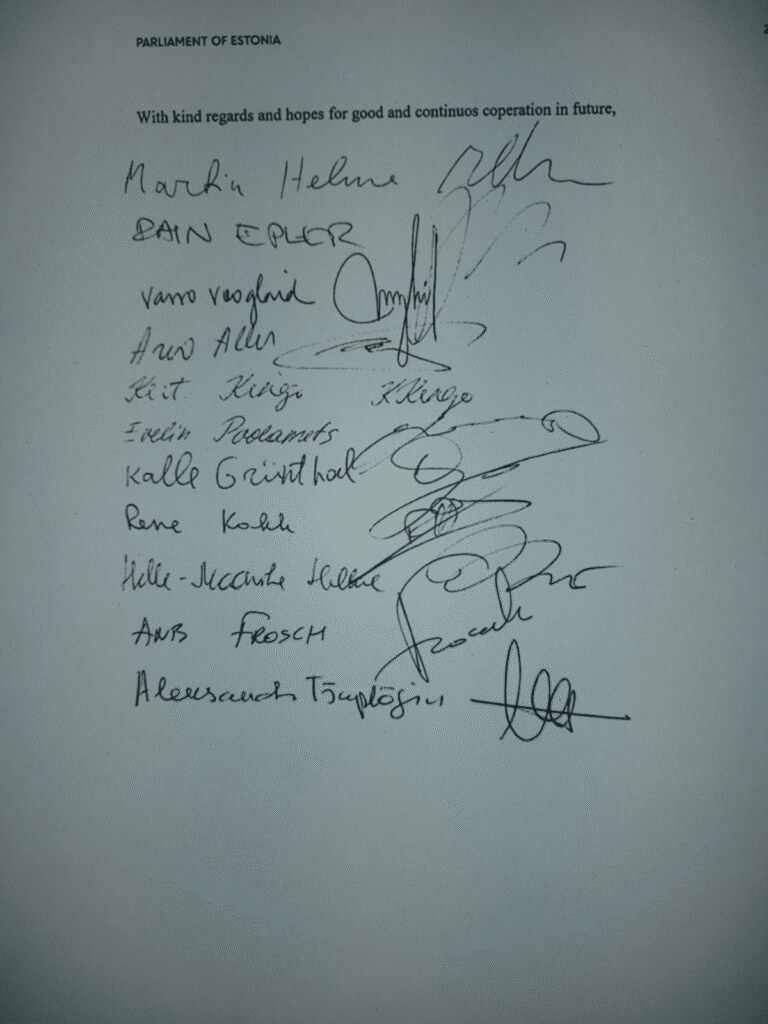 PARLIAMENT OF ESTONIA
2
With kind regards and hopes for good and continuos coperation in future,
Martin Helme
RAIN EPLER
Varro Vooglaid
Arvo Aller
Kert Kingo KKingo
Evelin Poolamets
Kalle Grünthal
Rene Kokk
Helle-Moonika Helme
ANTI FROSCH
Aleksandr Tšaplõgin